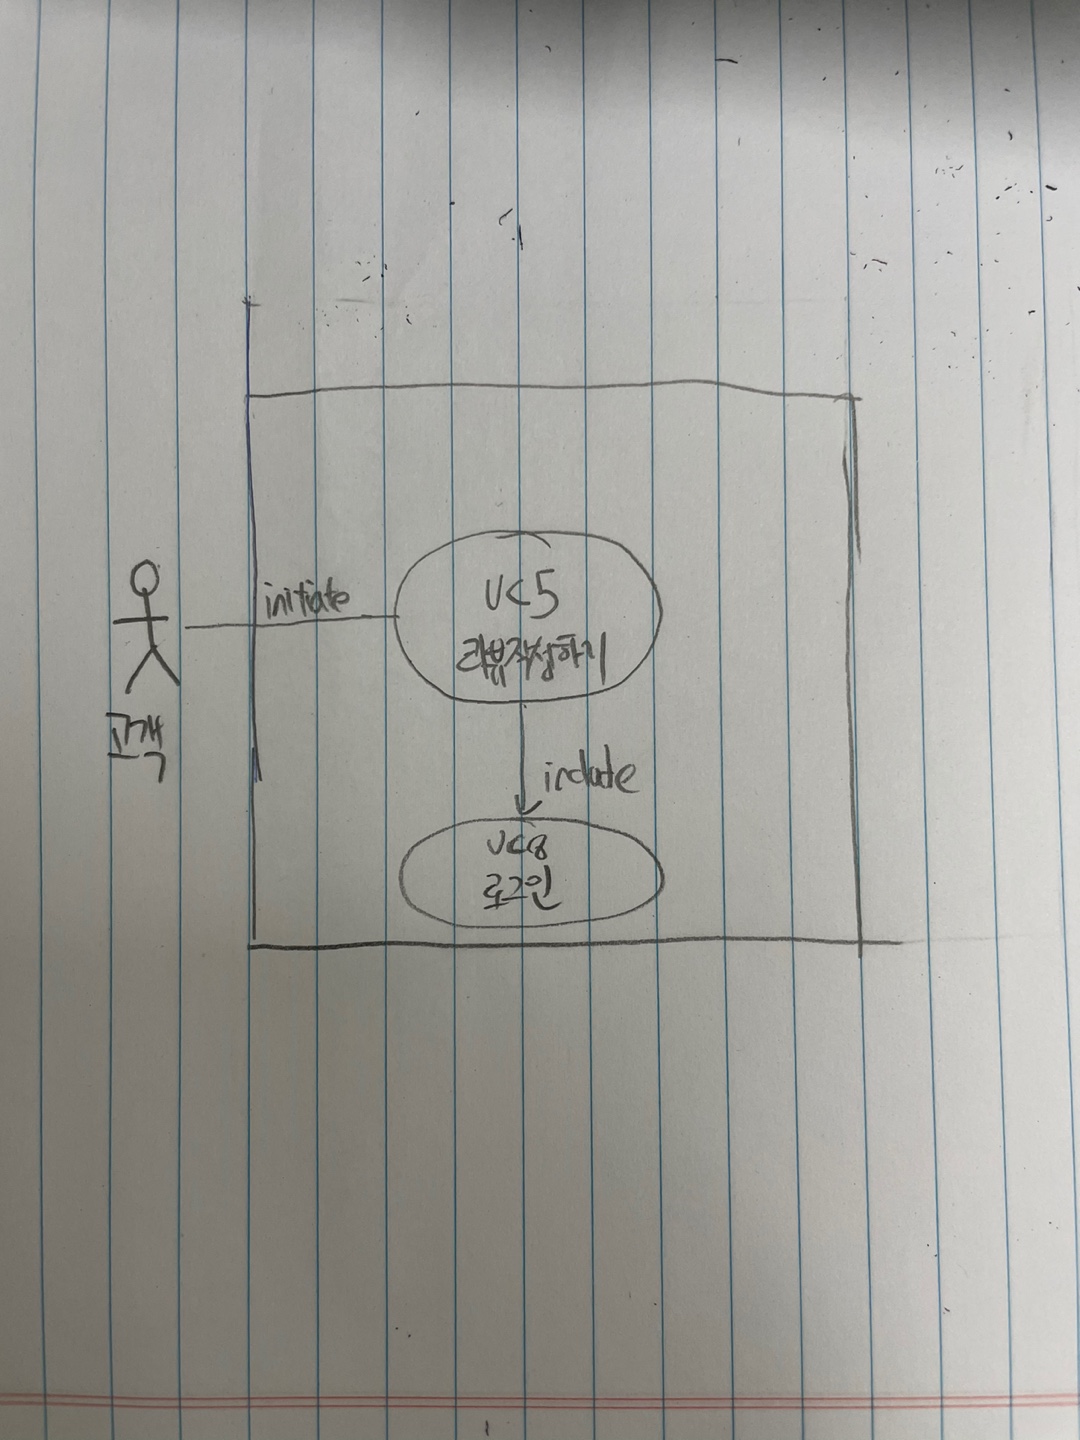 initiate
UC5
리뷰작성하기
고객
include
UC8
로그인